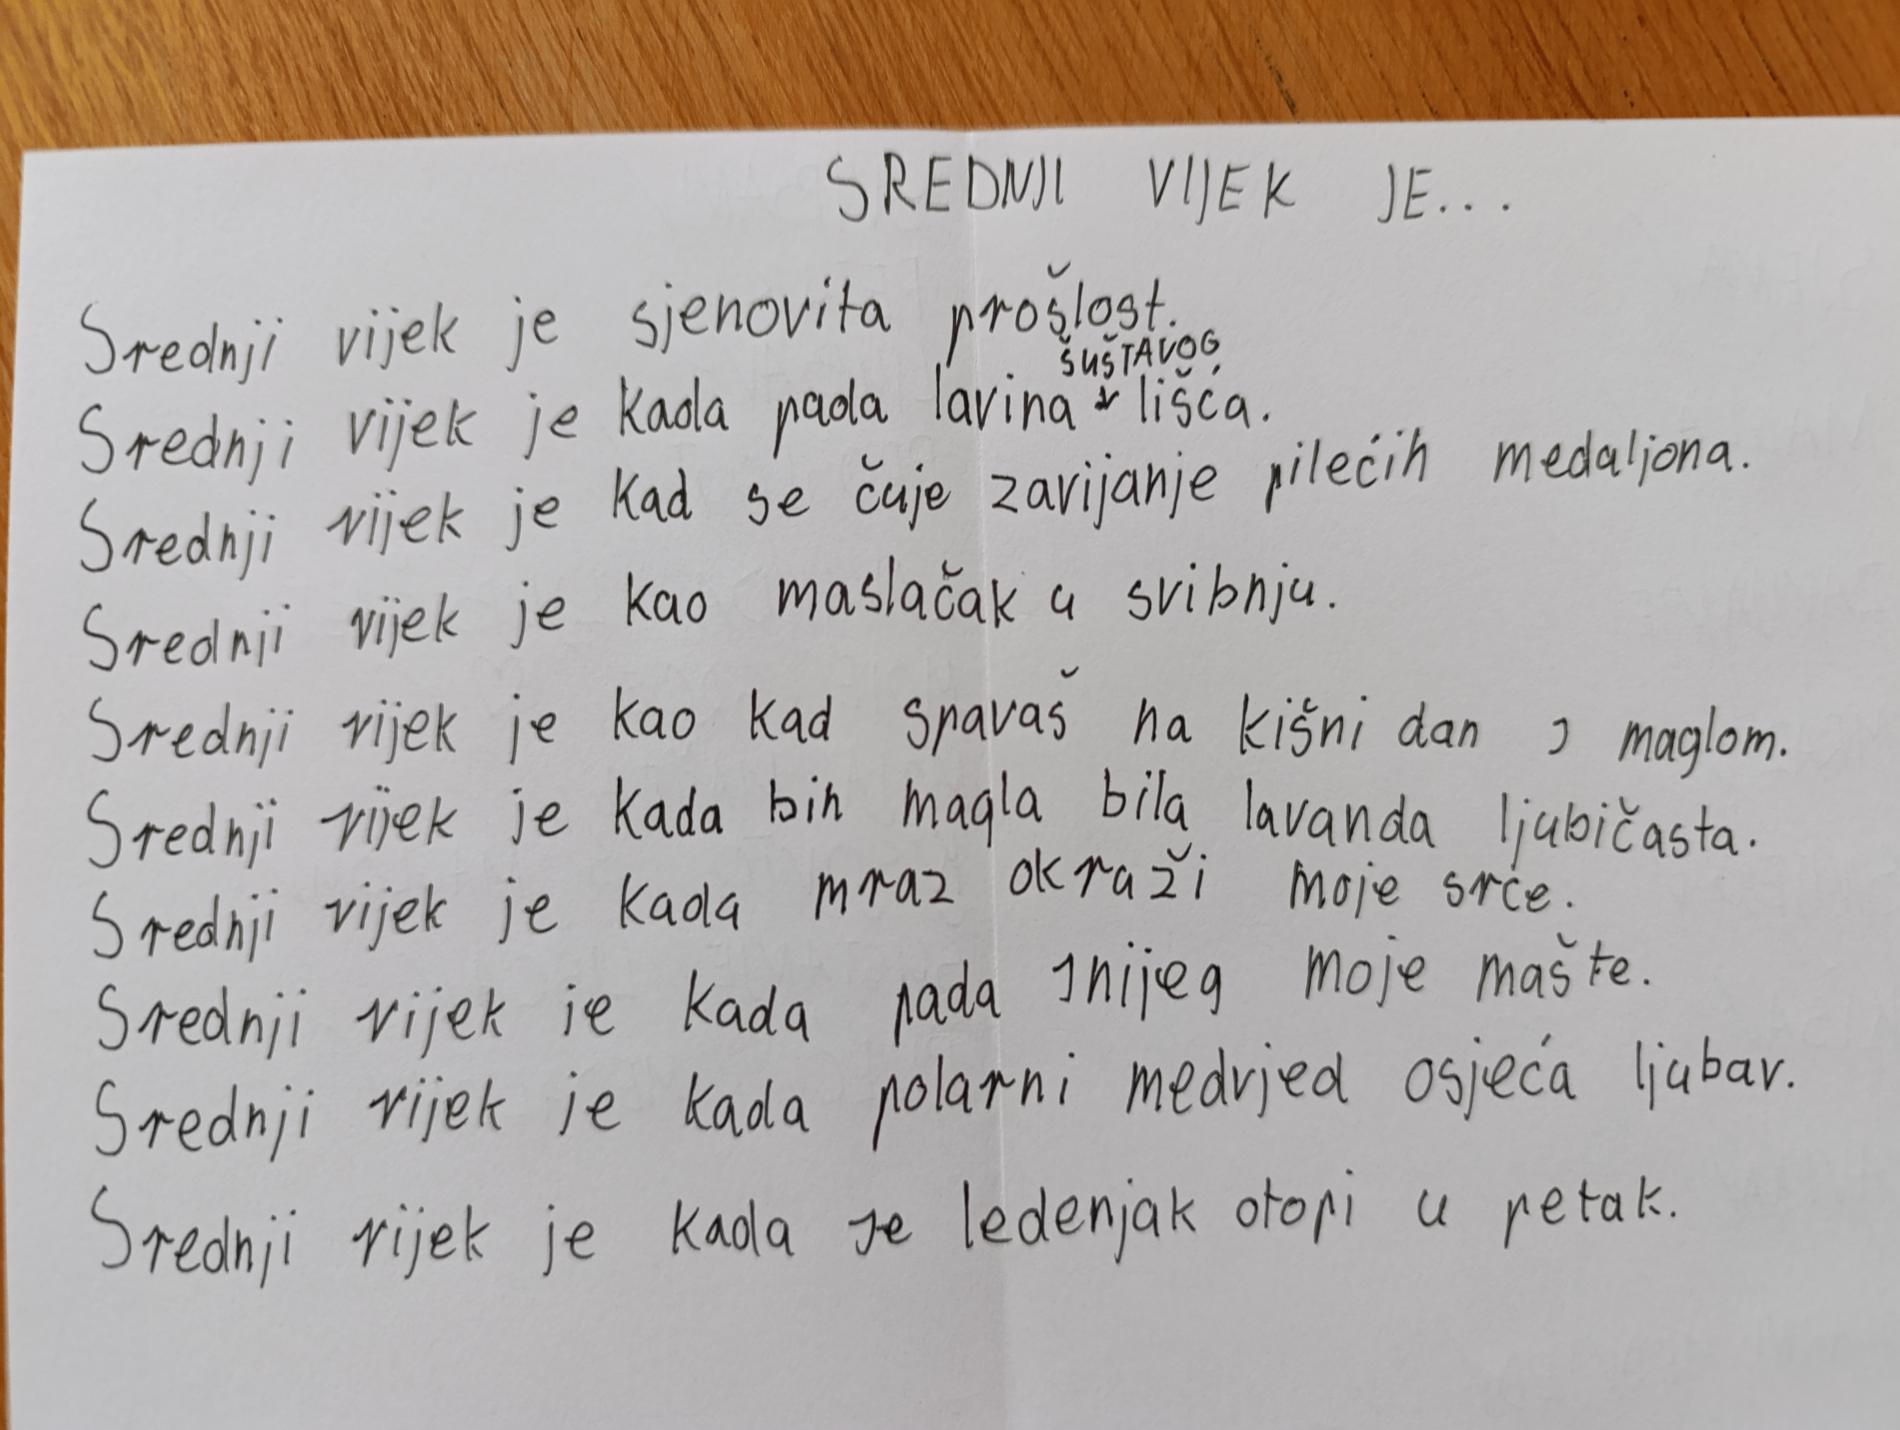 SREDNJI VIJEK JE...
Srednji vijek je sjenovita prošlost.
ŠUŠTAVOG
Srednji vijek je kada pada lavina lišća.
Srednji vijek je kad se čuje zavijanje pilećih medaljona.
Srednji vijek je kao maslačak u svibnju.
Srednji vijek je kao kad spavaš na kišni dan s maglom.
Srednji vijek je kada bih magla bila lavanda ljubičasta.
Srednji vijek je kada mraz okruži moje srce.
Srednji vijek je kada pada snijeg moje mašte.
Srednji vijek je kada polarni medvjed osjeća ljubav.
Srednji vijek je kada se ledenjak otopi u petak.